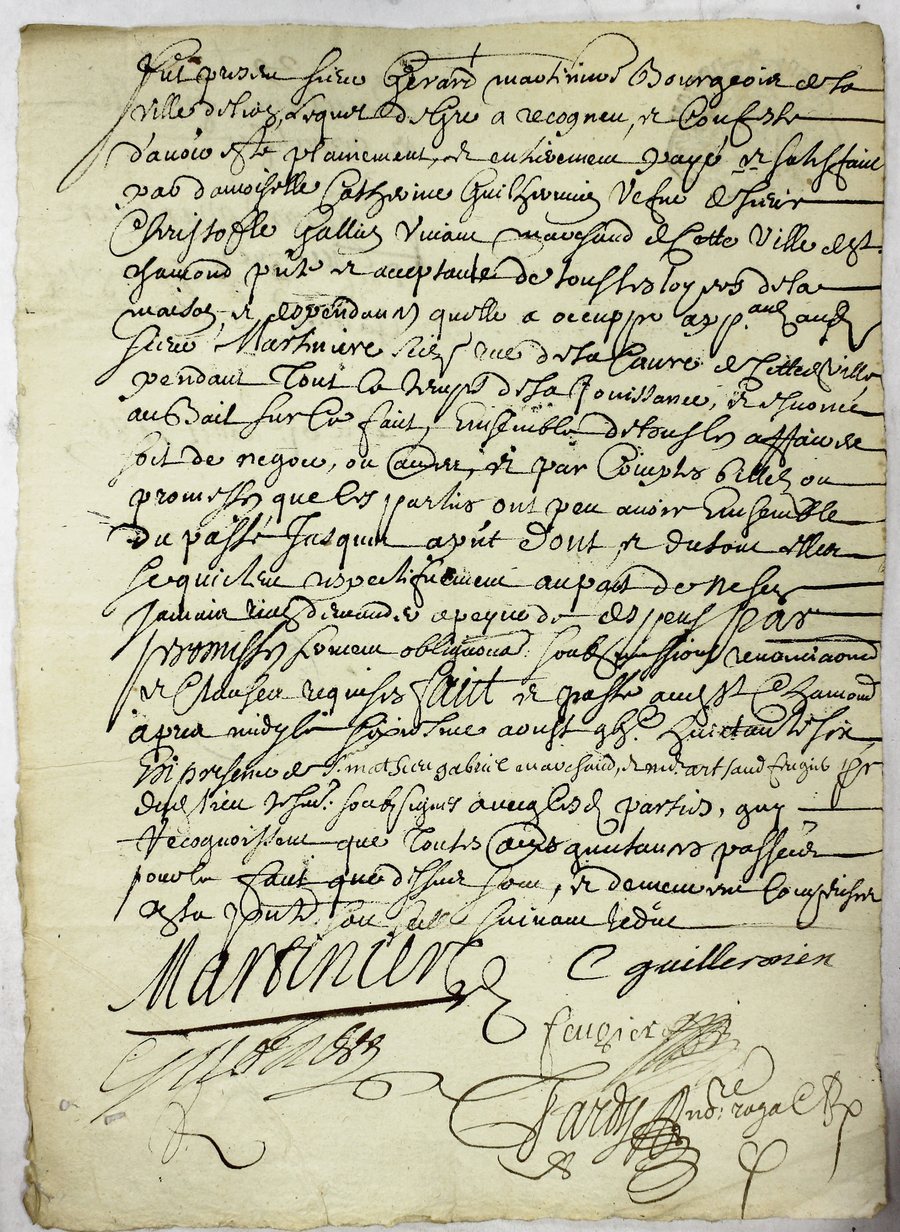 Fut presen sieur Gerard martinire Bourgeois de la
ville de lion, Lequel de gre a recogneu, et Confesse
d'avoir este plainement, et entierement payé et satisfaict
par damoiselle Catherine Guilhermin Vefue de sieur
Christofle Gallien Vivant marchand de Cette Ville de st
chamond pnte et acceptante de tous les loyers de la
maison, et despendances quelle a occuppe app. aud
sieur Martiniere rue de la Caure de Cette d Ville
pendant Tout le temps de la Jouissance, et
au Bail sur Ce fait, Ensemble de tous les affaires
soit de negoce, ou autres, et par Comptes billets ou
promesses que les parties ont peu avoir Ensemble
Du passé Jusques a pnt Dont et du tout elles
se quictent respectifvement au pact de ne se
Jamais rien demander a peyne de despens par
promesses serment obligaons soubsmissions renonciaons
et Clauses requises faict et passé aud st Chamond
apres midy le sixiesme aoust gbc huictante six
En presence de sr mathieu gabriel marchand, et
dud lieu tesms soubsignes avec les d parties, quy
recognoissent que Toutes quittances passees
pour le faict que dessus sont, et demeurent Comprises
en la pnte
Martiniere
C guillermien
feugier
Tardy no.re royal